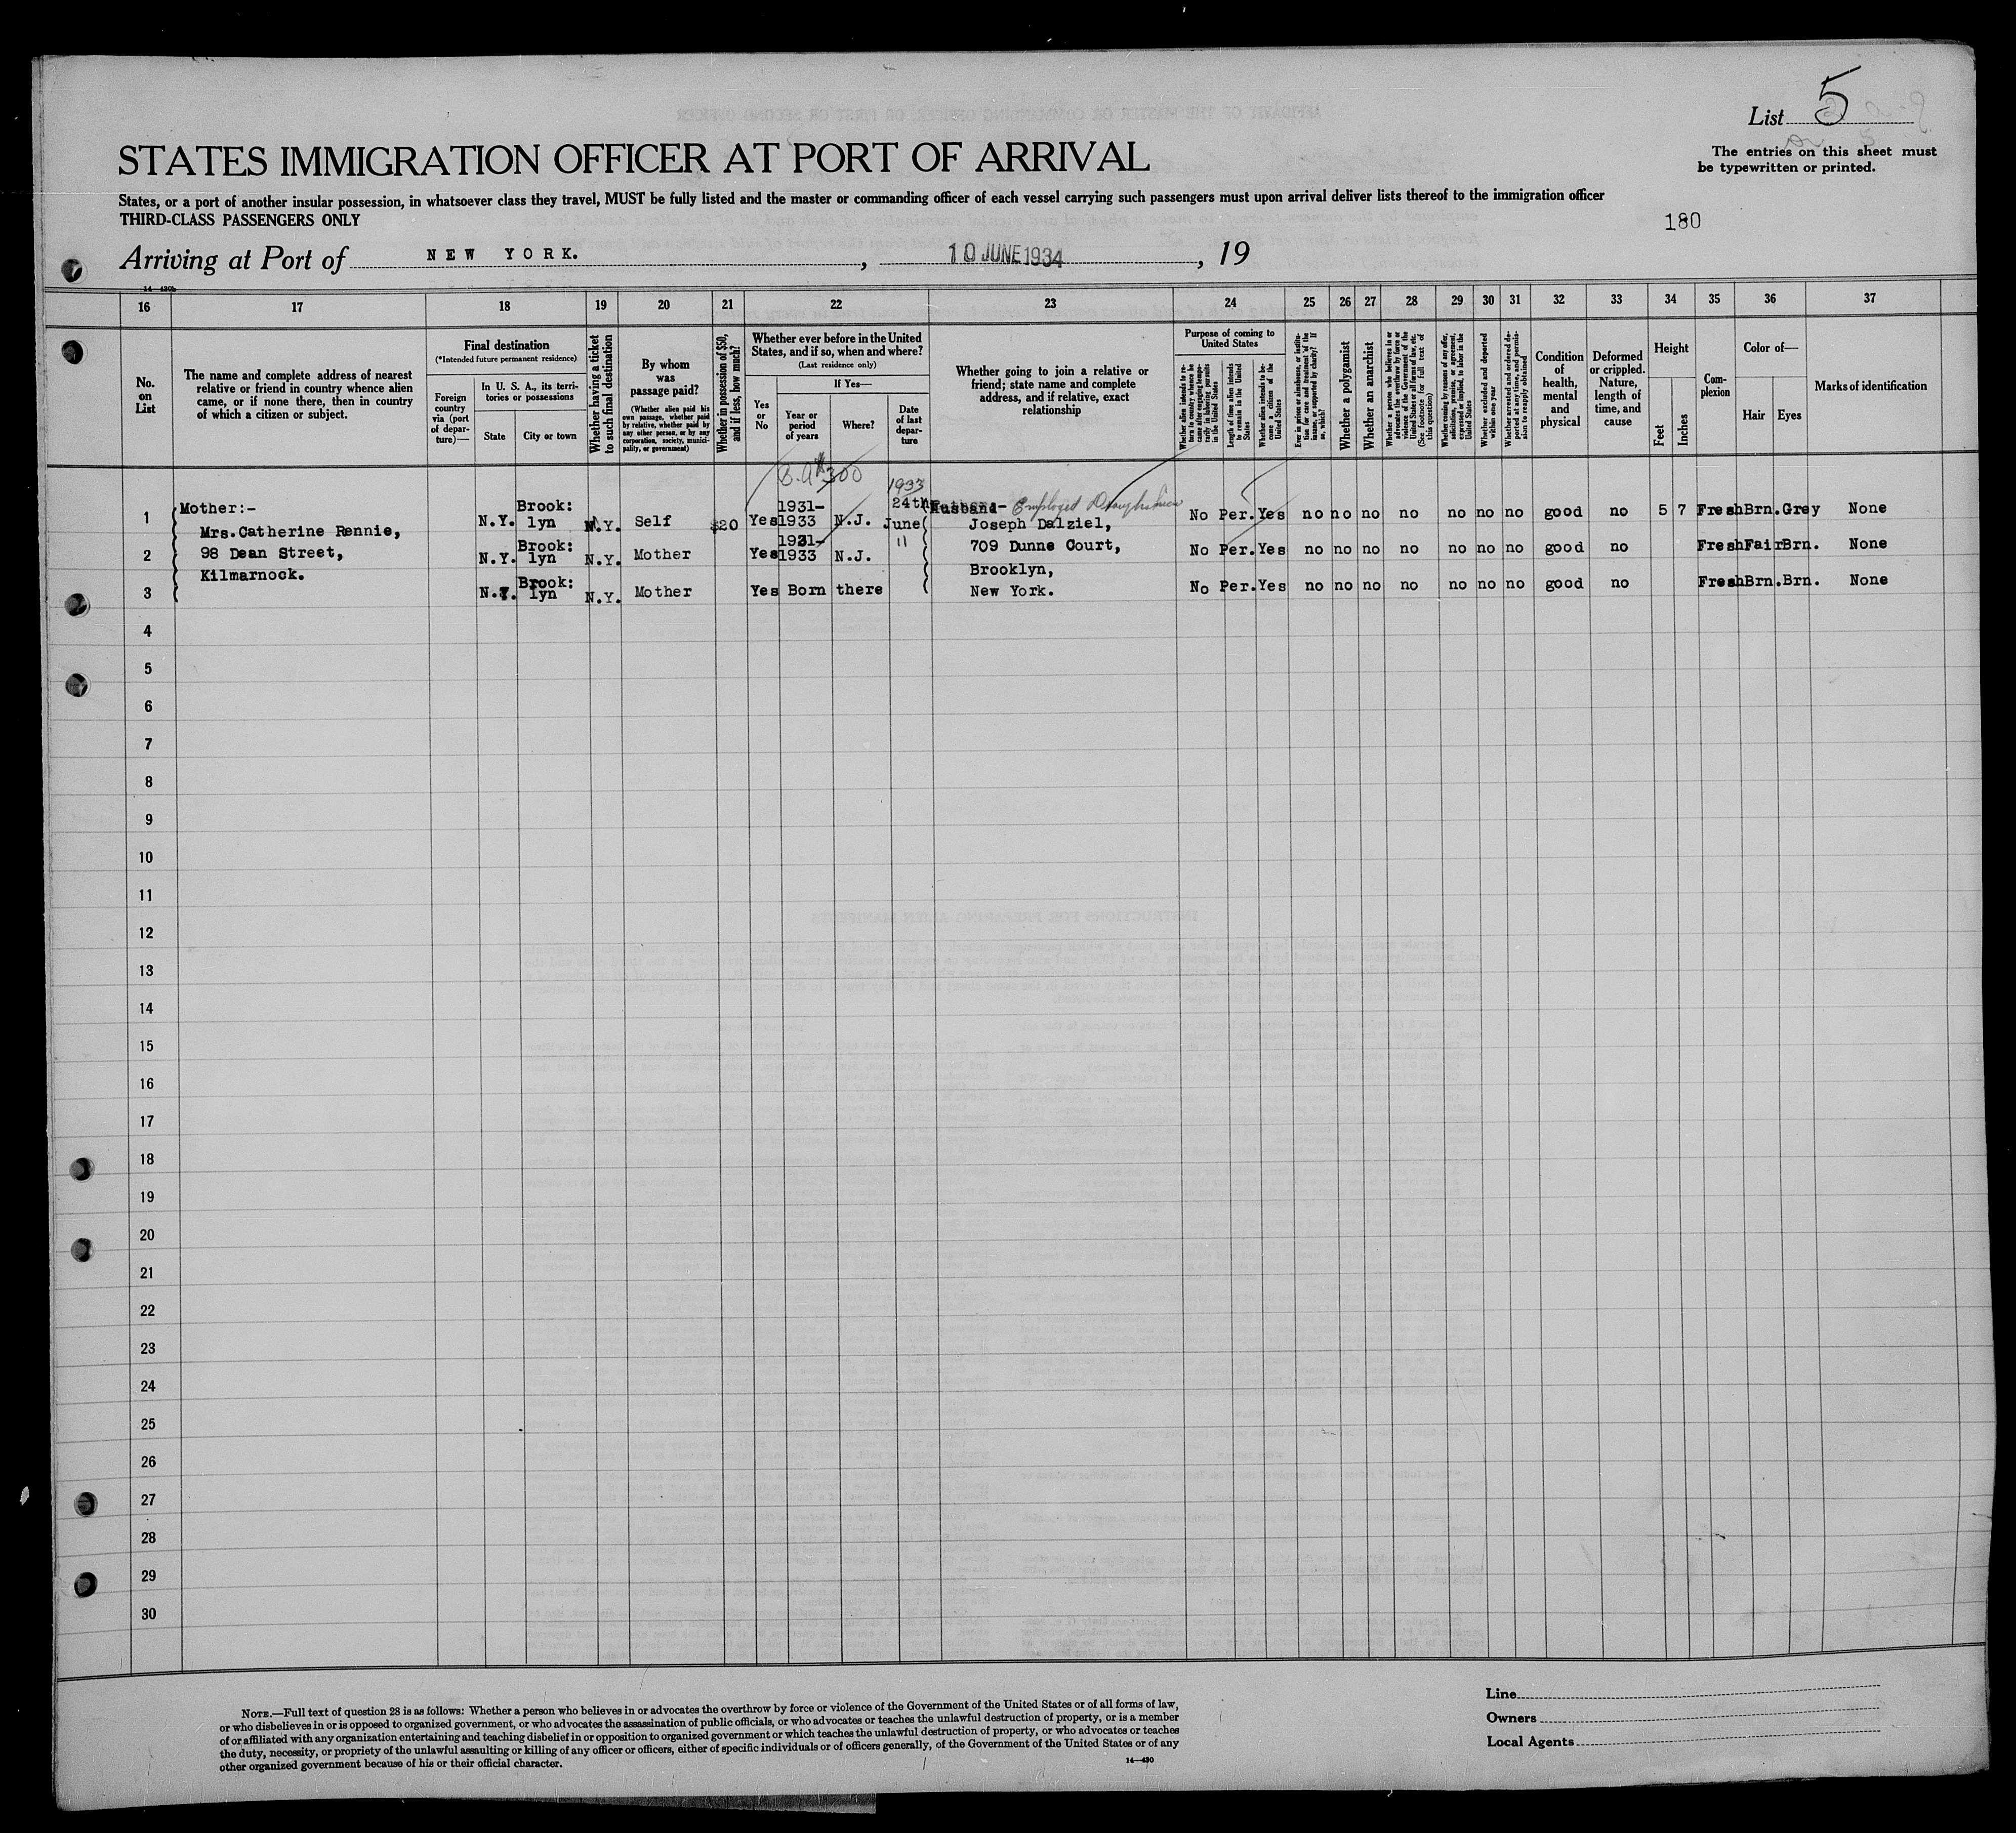 List 5
The entries on this sheet must
be typewritten or printed.
STATES IMMIGRATION OFFICER AT PORT OF ARRIVAL
States, or a port of another insular possession, in whatsoever class they travel, MUST be fully listed and the master or commanding officer of each vessel carrying such passengers must upon arrival deliver lists thereof to the immigration officer
THIRD-CLASS PASSENGERS ONLY
180
Arriving at Port of NEW YORK. , 10 JUNE 1934 , 19
16 17 18 19 20 21 22 23 24 25 26 27 28 29 30 31 32 33 34 35 36 37
No.
on
List
The name and complete address of nearest
relative or friend in country whence alien
came, or if none there, then in country
of which a citizen or subject.
Final destination
(*Intended future permanent residence)
Foreign
country
via (port
of depar-
ture)—
In U. S. A., its terri-
tories or possessions
State
City or town
Whether having a ticket
to such final destination
By whom
was
passage paid?
(Whether alien paid his
own passage, whether paid
by relative, whether paid by
any other person, or by any
corporation, society, munici-
pality, or government)
Whether in possession of $50,
and if less, how much?
Whether ever before in the United
States, and if so, when and where?
(Last residence only)
Yes
or
No
If Yes—
Year or
period
of years
Where?
Date
of last
depar-
ture
Whether going to join a relative or
friend; state name and complete
address, and if relative, exact
relationship
Purpose of coming to
United States
Whether alien intends to re-
turn to country whence he
came after engaging tempo-
rarily in laboring pursuits
in the United States
Length of time alien intends
to remain in the United
States
Whether alien intends to be-
come a citizen of the
United States
Ever in prison or almshouse, or institu-
tion for care and treatment of the
insane, or supported by charity? If
so, which?
Whether a polygamist
Whether an anarchist
Whether a person who believes in or
advocates the overthrow by force or
violence of the Government of the
United States or all forms of law, etc.
(See footnote for full text of
this question)
Whether coming by reasons of any offer,
solicitation, promise, or agreement,
expressed or implied, to labor in the
United States
Whether excluded and deported
within one year
Whether arrested and ordered de-
ported at any time, and permis-
sion to reapply obtained
Condition
of
health,
mental
and
physical
Deformed
or crippled.
Nature,
length of
time, and
cause
Height
Feet
Inches
Com-
plexion
Color of—
Hair
Eyes
Marks of identification
B.A $300
1 Mother:- N.Y. Brook:lyn N.Y. Self $20 Yes 1931-1933 N.J. 1933 24th June Husband- Employed Draughtsman No Per. Yes no no no no no no no good no 5 7 Fresh Brn. Grey None
Mrs.Catherine Rennie, Joseph Dalziel,
2 98 Dean Street, N.Y. Brook:lyn N.Y. Mother Yes 1931-1933 N.J. " 709 Dunne Court, No Per. Yes no no no no no no no good no Fresh Fair Brn. None
Kilmarnock. Brooklyn,
3 N.Y. Brook:lyn N.Y. Mother Yes Born there New York. No Per. Yes no no no no no no no good no Fresh Brn. Brn. None
4
5
6
7
8
9
10
11
12
13
14
15
16
17
18
19
20
21
22
23
24
25
26
27
28
29
30
NOTE.—Full text of question 28 is as follows: Whether a person who believes in or advocates the overthrow by force or violence of the Government of the United States or of all forms of law,
or who disbelieves in or is opposed to organized government, or who advocates the assassination of public officials, or who advocates or teaches the unlawful destruction of property, or is a member
of or affiliated with any organization entertaining and teaching disbelief in or opposition to organized government or which teaches the unlawful destruction of property, or who advocates or teaches
the duty, necessity, or propriety of the unlawful assaulting or killing of any officer or officers, either of specific individuals or of officers generally, of the Government of the United States or of any
other organized government because of his or their official character.
14—430
Line
Owners
Local Agents